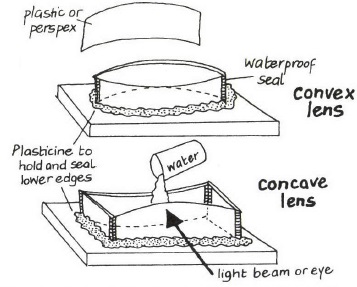 plastic or
perspex
waterproof
seal
convex
lens
Plasticine to
hold and seal
lower edges
water
concave
lens
light beam or eye